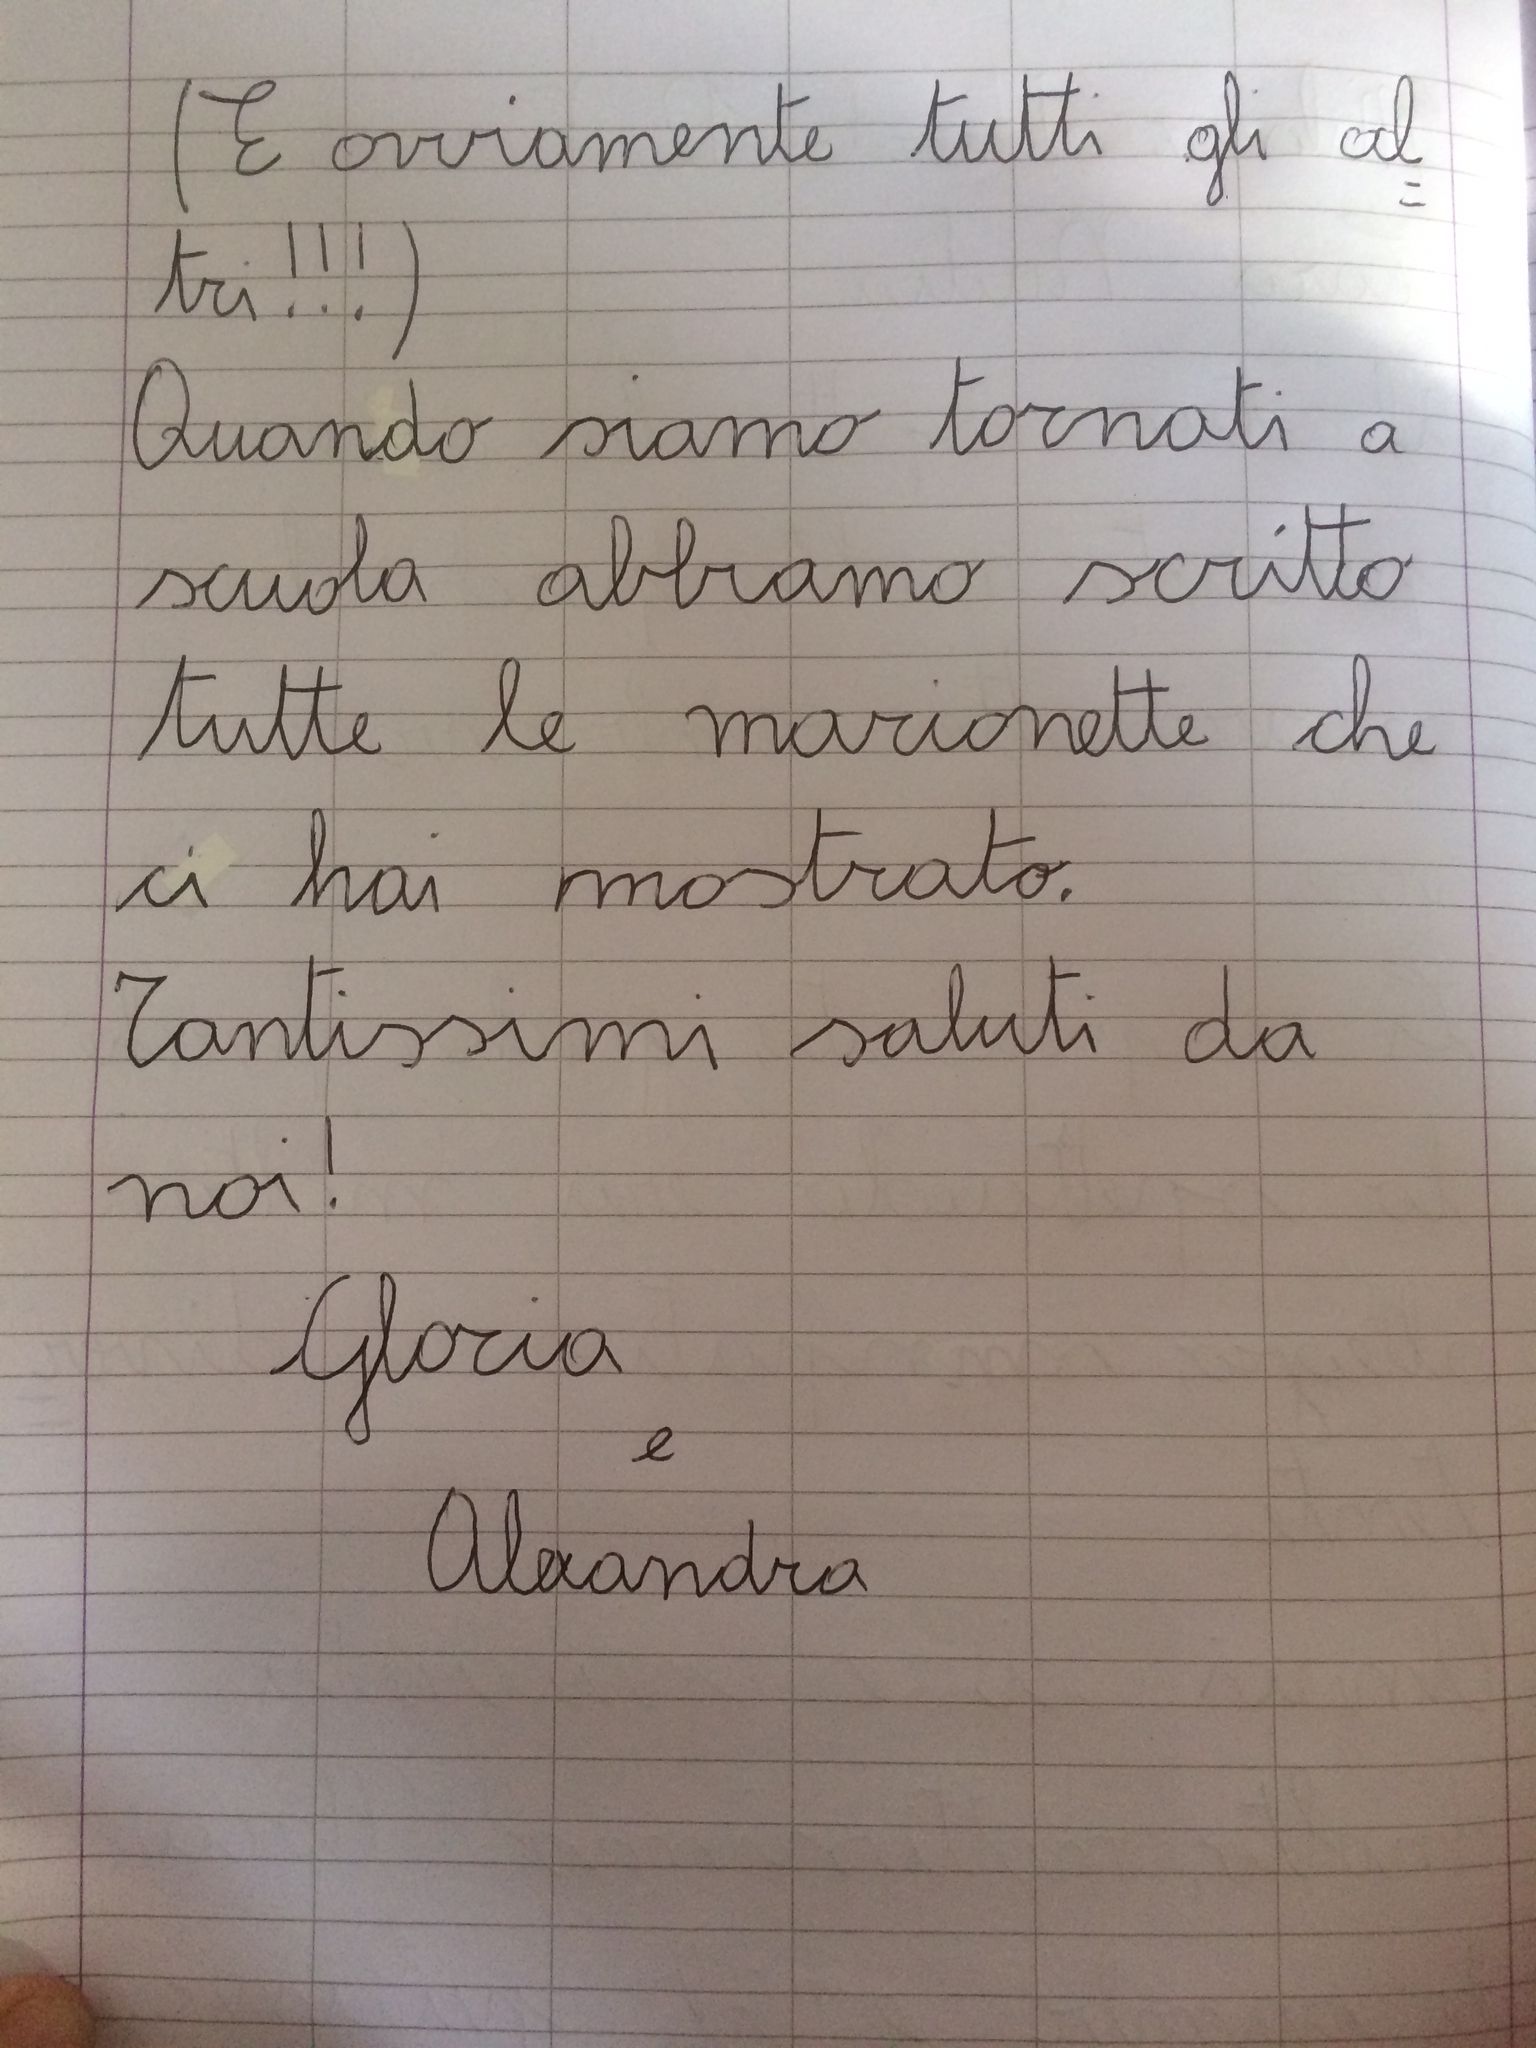 (E ovviamente tutti gli al=
tri!!!)
Quando siamo tornati a
scuola abbiamo scritto
tutte le marionette che
ci hai mostrato.
Tantissimi saluti da
noi!
Gloria
e
Alexandra